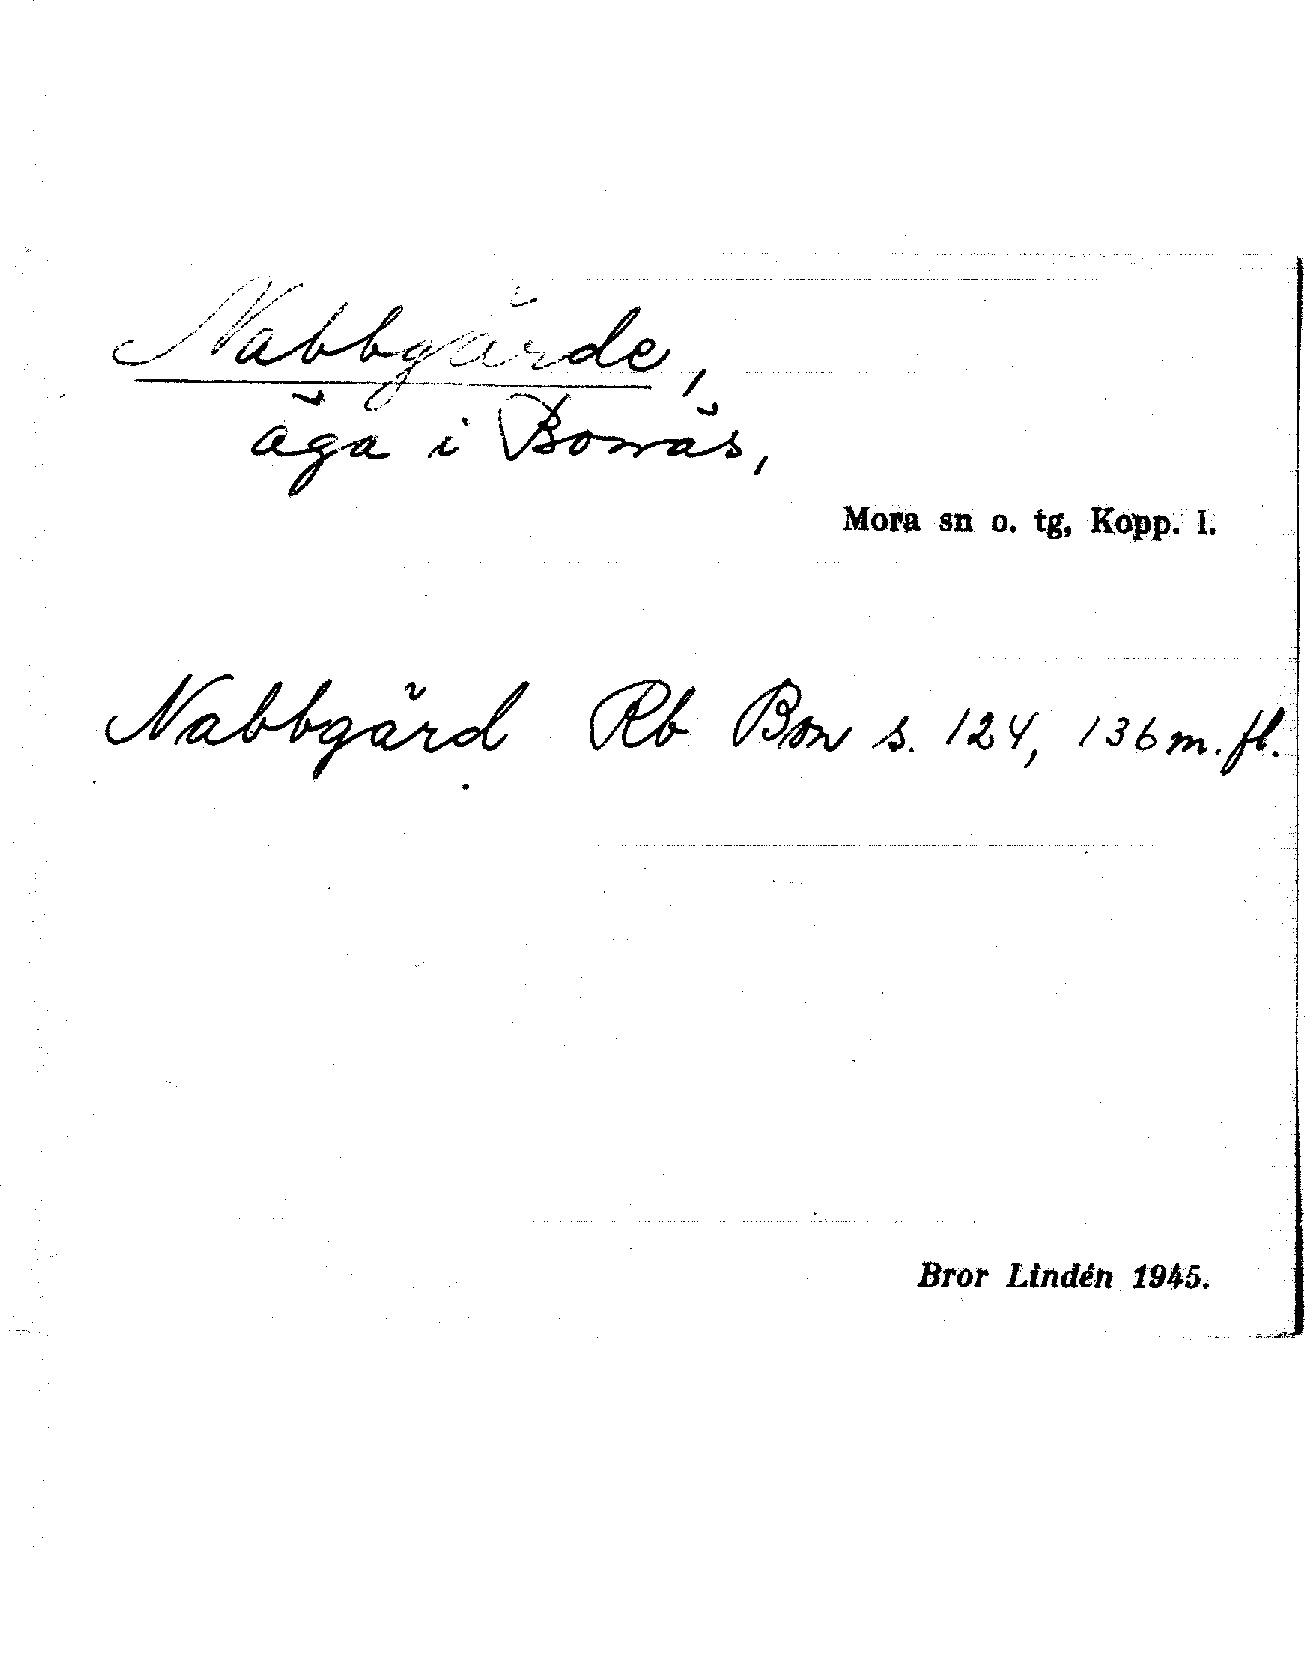 Nabbgärde,
äga i Bonäs,
Mora sn o. tg, Kopp. l.
Nabbgärd Rb Bon s. 124, 136 m. fl.
Bror Lindén 1945.